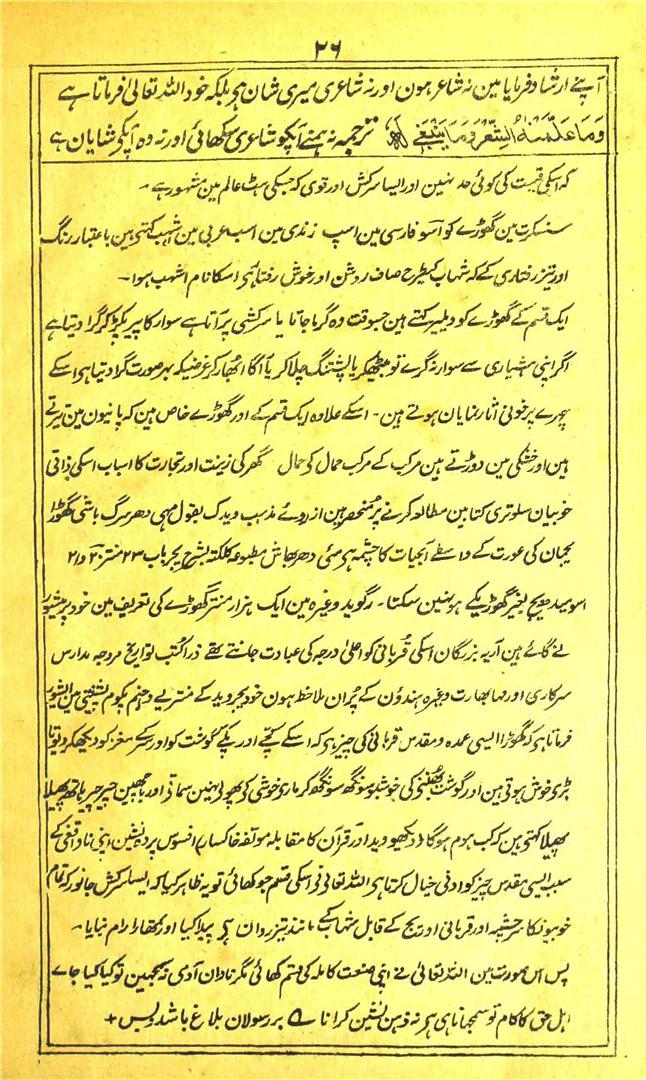 ۲۶
آپنے ارشاد فرمایا مین نہ شاعر ہون اور نہ شاعری میری شان ہی بلکہ خود اللہ تعالیٰ فرماتا ہے
وَمَا عَلَّمْنٰهُ الشِّعْرَ وَمَا یَنْۢبَغِیْ لَهٗ ترجمہ نہ ہمنے آپکو شاعری سکھائی اور نہ وہ آپکو شایان ہے
کہ اسکی قیمت کی کوئی حد نہین اور ایسا سرکش اور قوی کہ جسکی ہٹ عالم مین مشہور ہے ۔
سنسکرت مین گھوڑے کو آسو فارسی مین اسپ زندی مین اسب عربی مین اشہب کہتی ہین باعتبار رنگ
اور تیز رفتاری کے کہ شہاب کیطرح صاف روشن اور خوش رفتار ہی اسکا نام اشہب ہوا ۔
ایک قسم کے گھوڑے کو دیلیر کہتے ہین جسوقت وہ گرما جاتا یا سرکشی پر آتا ہے سوار کا پیر پکڑ کر گرا دیتا ہے
اگر اپنی ہشیاری سے سوار نہ گرے تو بیٹھکر یا پشتنگ چلا کر یا آگا اٹھا کر غرضیکہ بہر صورت گرا دیتا ہی اسکے
چہرے پر خونی آثار نمایان ہوتے ہین ۔ اسکے علاوہ ایک قسم کے اور گھوڑے خاص ہین کہ پانیون مین تیرتے
ہین اور خشکی مین دوڑتے ہین مرکب کے مرکب حمال کی حمال گھر کی زینت اور تجارت کا اسباب اسکی ذاتی
خوبیان سلوتری کتابین مطالعہ کرنے پر منحصر ہین از روئے مذہب ویدک بقول مہی دھر سرگ باشی گھوڑا
یجمان کی عورت کے واسطے آبحیات کا چشمہ ہی مئی دھر بھاش مطبوعہ کلکتہ بشرح یجر باب ۲۳ منتر ۲۰ و ۲۱
اسومیدھ یج بغیر گھوڑیکے ہو نہین سکتا ۔ رگوید وغیرہ مین ایک ہزار منتر گھوڑے کی تعریف مین خود پرمیشور
نے گائے ہین آریہ بزرگان اسکی قربانی کو اعلیٰ درجہ کی عبادت جانتے تھے ذرا کتب تواریخ مروجہ مدارس
سرکاری اور مہا بھارت وغیرہ ہندؤن کے پران ملاحظہ ہون خود یجروید کے منتر یے واجنم پکوم پشینتی مین ایشور
فرماتا ہی کہ گھوڑا ایسی عمدہ و مقدس قربانی کی چیز ہی کہ اسکے کچے اور پکے گوشت کو اور سر کے مغز کو دیکھکر دیوتا
بڑی خوش ہوتی ہین اور گوشت بھننی کی خوشبو سونگھ سونگھ کر مارے خوشی کی پھولی نہین سماتی اور باچھین چیر چیر ہاتھ پھیلا
پھیلا کہتی ہین کہ کب ہوم ہوگا (دیکھو وید اور قرآن کا مقابلہ مولفہ خاکسار) افسوس پردہ نشین اپنی ناواقفی کے
سبب ایسی مقدس چیز کو ادنی خیال کرتا ہی اللہ تعالی نی اسکی قسم جو کھائی تو یہ ظاہر کیا کہ ایسا سرکش جانور کہ تمام
خوبیونکا سر چشمہ اور قربانی اور یج کے قابل شہاب کے مانند تیز روان ہی پیدا کیا اور تمھارا رام بنایا ۔
پس اس صورت مین اللہ تعالیٰ نے اپنی صنعت کاملہ کی قسم کھائی مگر نادان آدمی نہ سمجھین تو کیا کیا جاے
اہل حق کا کام تو سمجھانا ہی ہی نہ ذہن نشین کرانا ؎ بر رسولان بلاغ باشد و بس +